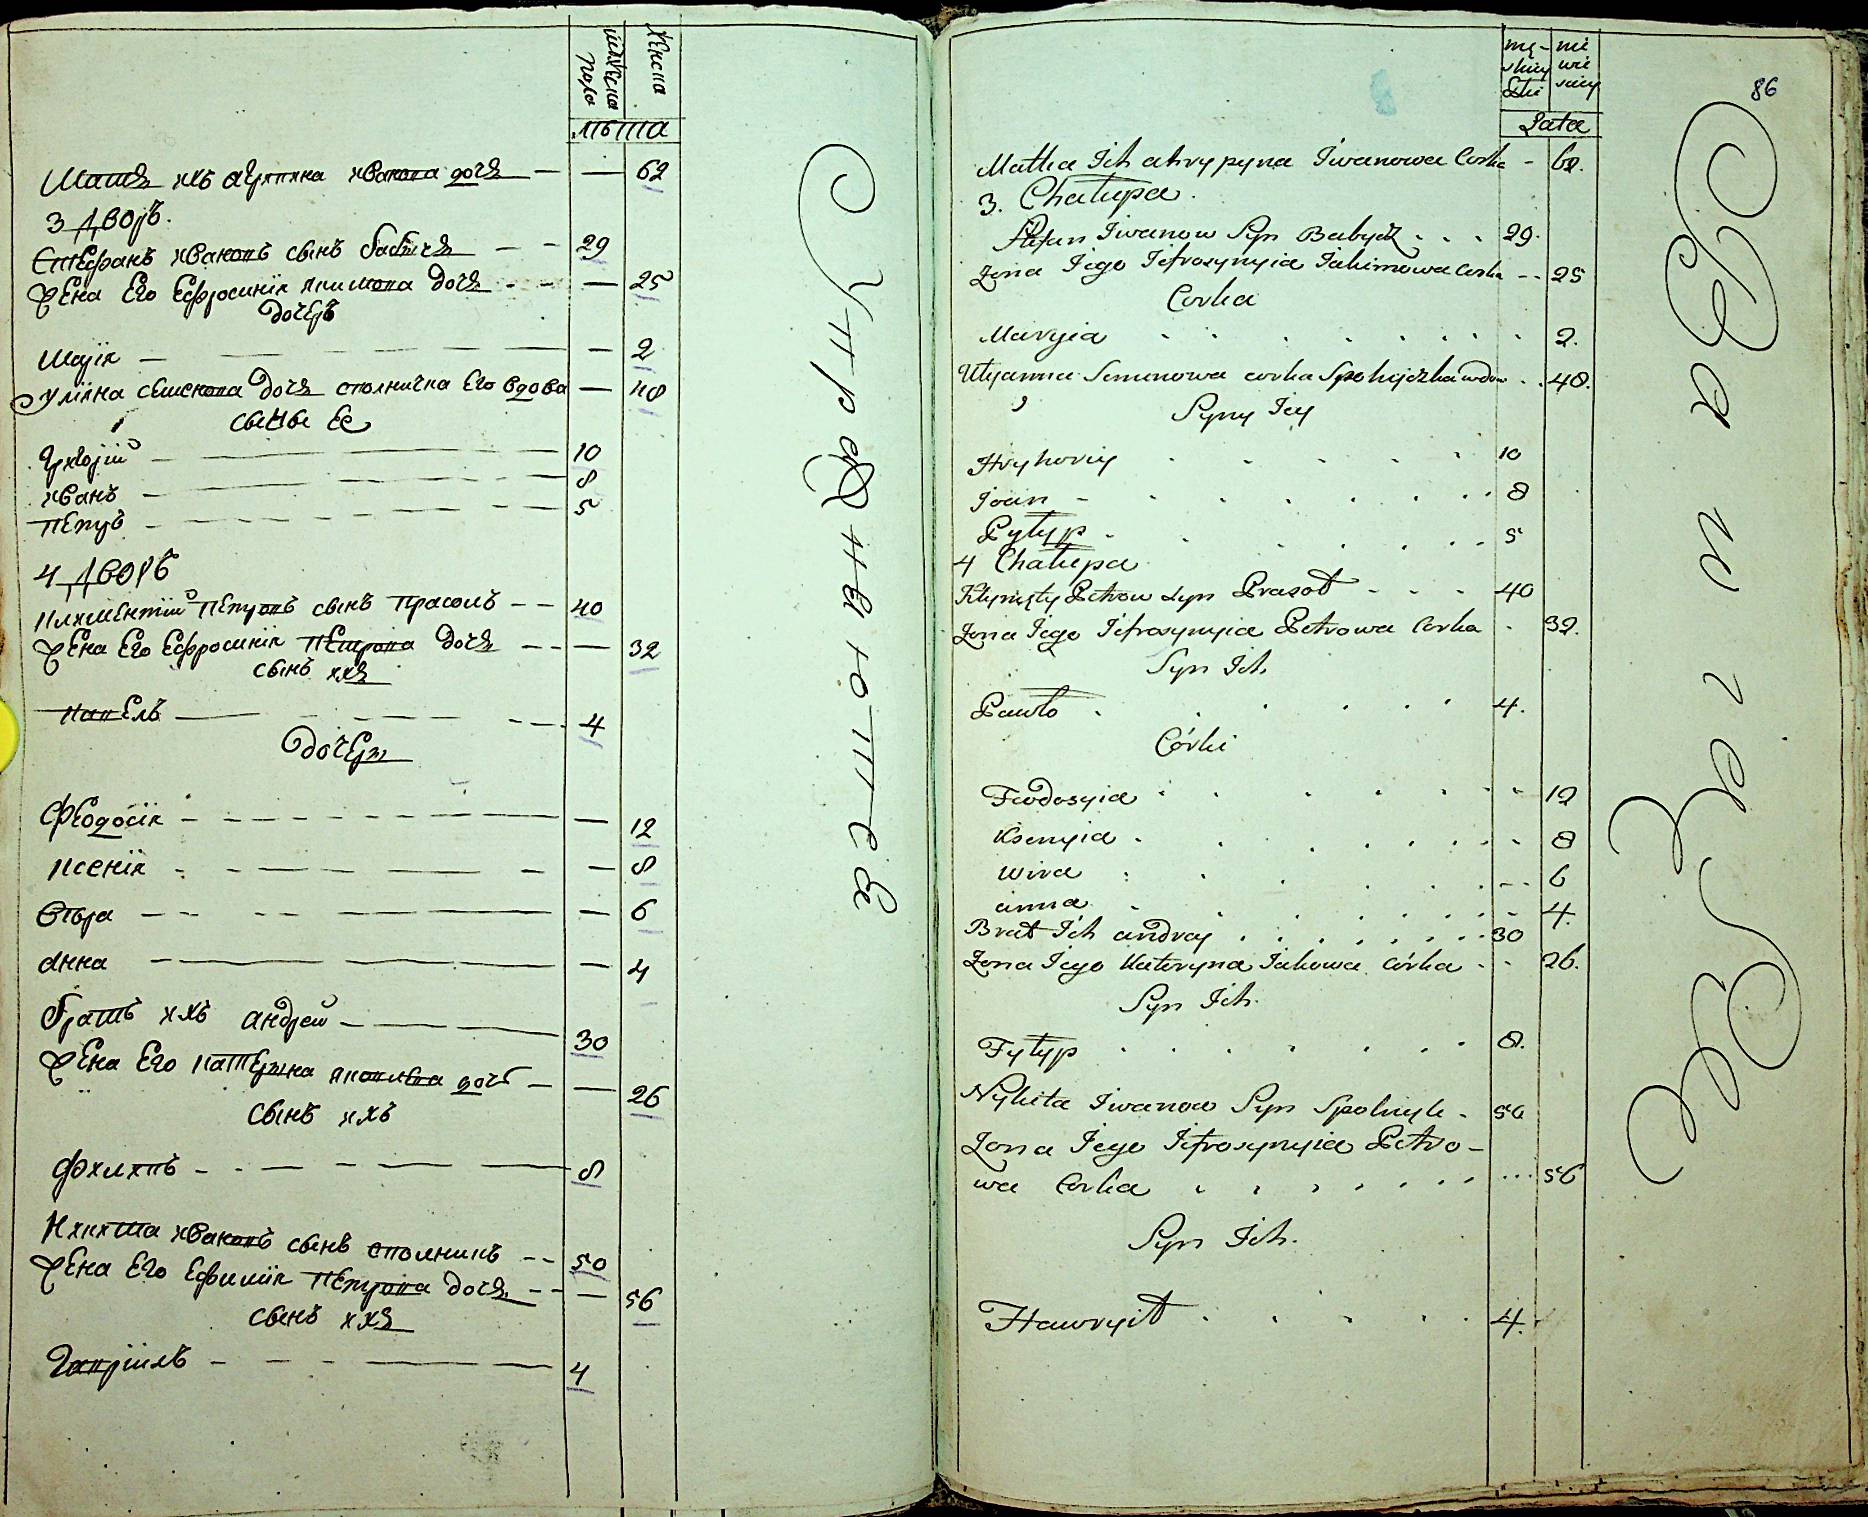 мужеска пола
женска
лѣта
Матѣ ихъ агрипина иванова дочѣ — — 62
3 Дворъ.
Стефанъ ивановъ сынъ бабичѣ — — 29
Жена Его Ефросинія якимова дочѣ — — 25
дочерь
Марія — — — 2
Уліяна семенова дочѣ сполничка Его вдова — 40
сыны Ее
Григорій — — — 10
иванъ — — — 8
Петръ — — — 5
4 Дворъ
Климентий Петровъ сынъ Прасолъ — — 40
Жена Его Ефросинія Петрова дочѣ — — 32
сынъ ихѣ
Павелъ — — — 4
Дочери
Феодосія — — — 12
Ксенія — — — 8
Вѣра — — — 6
анна — — — 4
братъ ихъ андрей — — 30
Жена Его Катерина яковлева дочь — — 26
сынъ ихъ
Филипъ — — — 8
Никита ивановъ сынъ сполникъ — — 50
Жена Его Ефимія Петрова дочѣ — — 56
сынъ ихѣ
Гавріилъ — — — 4
86
Lata
Matka Ich ahrypyna Iwanowa Corka - 62.
3. Chalupa.
Stefan Iwanow Syn Babycz . . . 29.
Zona Jego Jefrosynyia Jakimowa Corka - - 25
Corka
Maryia . . . . . . . 2.
Ulyanna Semenowa corka Spolnyczka wdow . . 40.
Syny Jey
Hryhoriy . . . . . 10
Joan - . . . . . . 8
Pytyp - . . . . . 5
4 Chalupa
Klymęty Petrow Syn Prasoł - - - - 40
Zona Jego Jefrosynyia Petrowa Corka - 32.
Syn Ich.
Pawło . . . . . 4.
Córki
Feodosyia . . . . . . . 12
Ksenyia . . . . . . . 8
wira . . . . . - - 6
anna . . . . . . 4.
Brat Ich andray . . . . . . . 30
Zona Jego Kateryna Jakowa córka - - 26.
Syn Ich.
Fylyp . . . . . . . 8.
Nykita Iwanow Syn Spolnyk - 50
Zona Jego Jefrosynyia Petro-
wa Corka . . . . . . . . . . 56
Syn Ich.
Hawryił . . . . . 4.